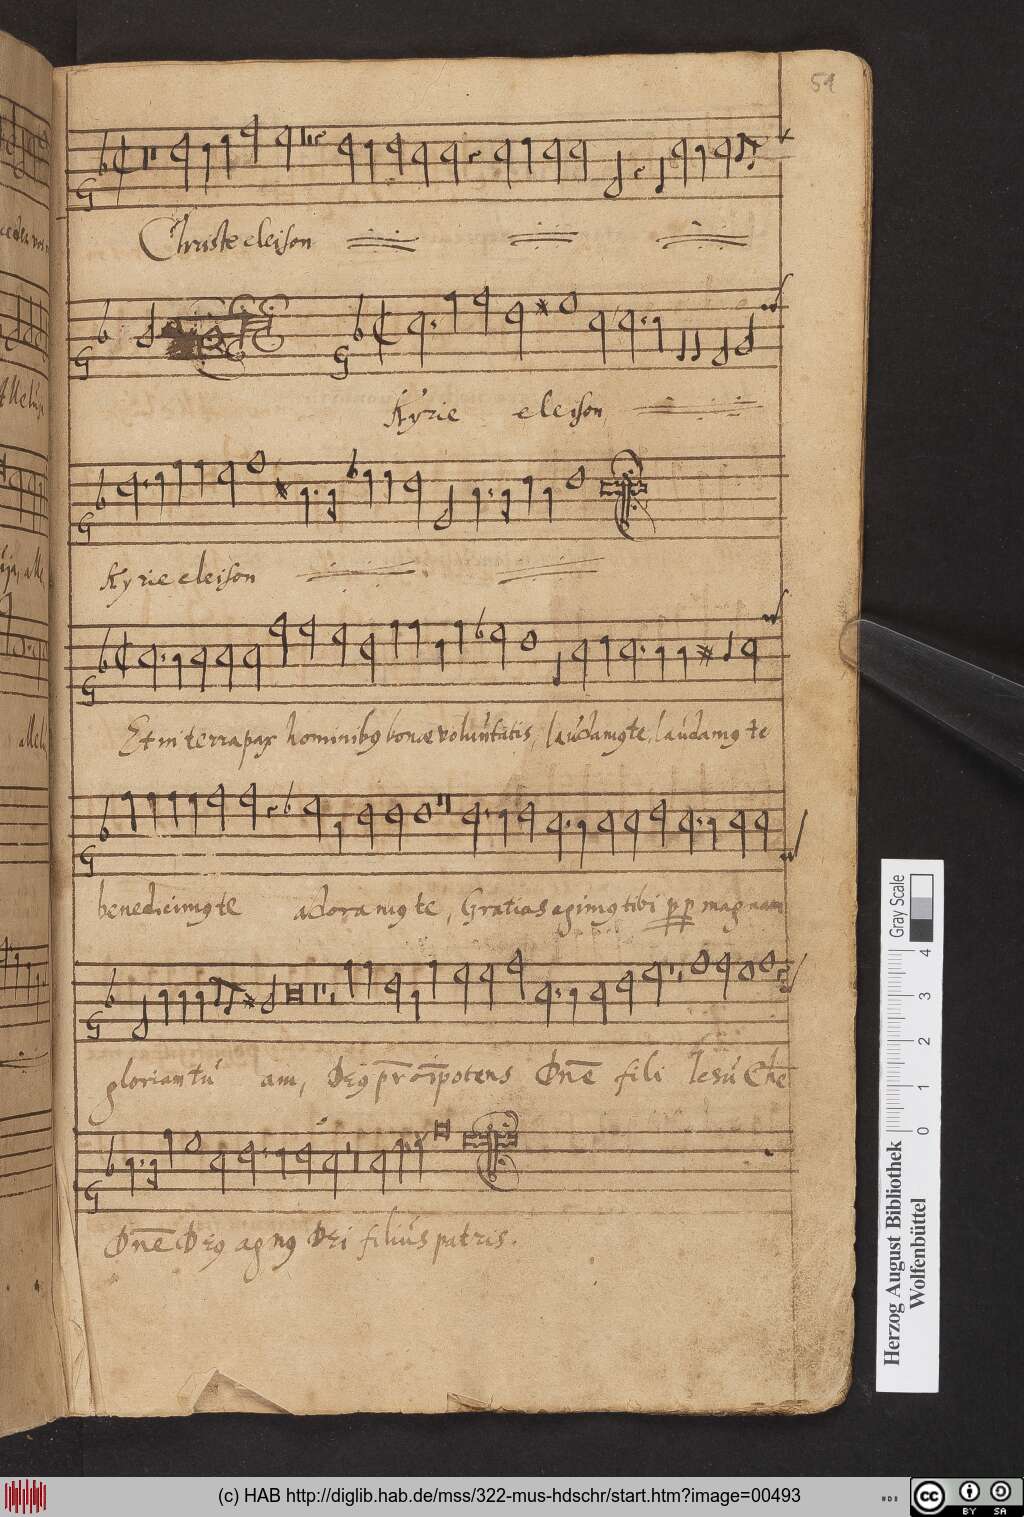 54
Christe eleison
Kyrie eleison
Kyrie eleison
Et in terra pax hominibꝯ bonæ voluntatis, laudamꝯ te, laudamꝯ te
benedicimꝯ te adoramꝯ te, Gratias agimꝯ tibi pp magnam
gloriam tu am, Deꝯ pr oīpotens Dn̄e fili Iesu Chr̄e
Dn̄e Deꝯ agnꝯ Dei filius patris.
Herzog August Bibliothek
Wolfenbüttel
Gray Scale
0 1 2 3 4
(c) HAB http://diglib.hab.de/mss/322-mus-hdschr/start.htm?image=00493
cc BY SA